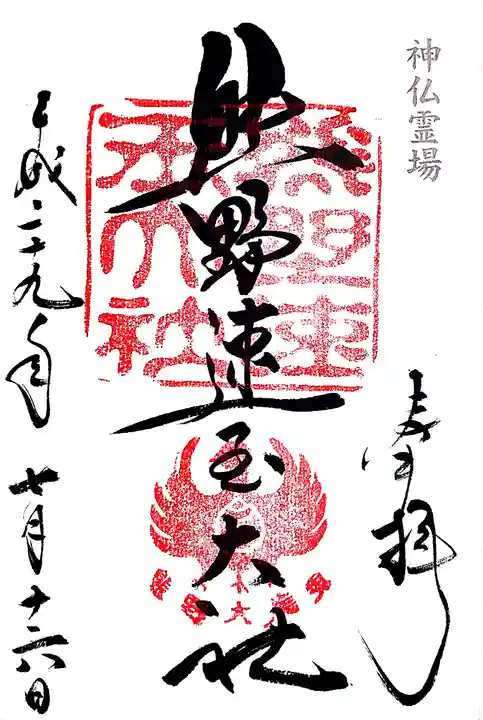 神仏霊場
奉拝
熊野速玉大社
平成二十九年
七月十六日
熊野速
玉大社